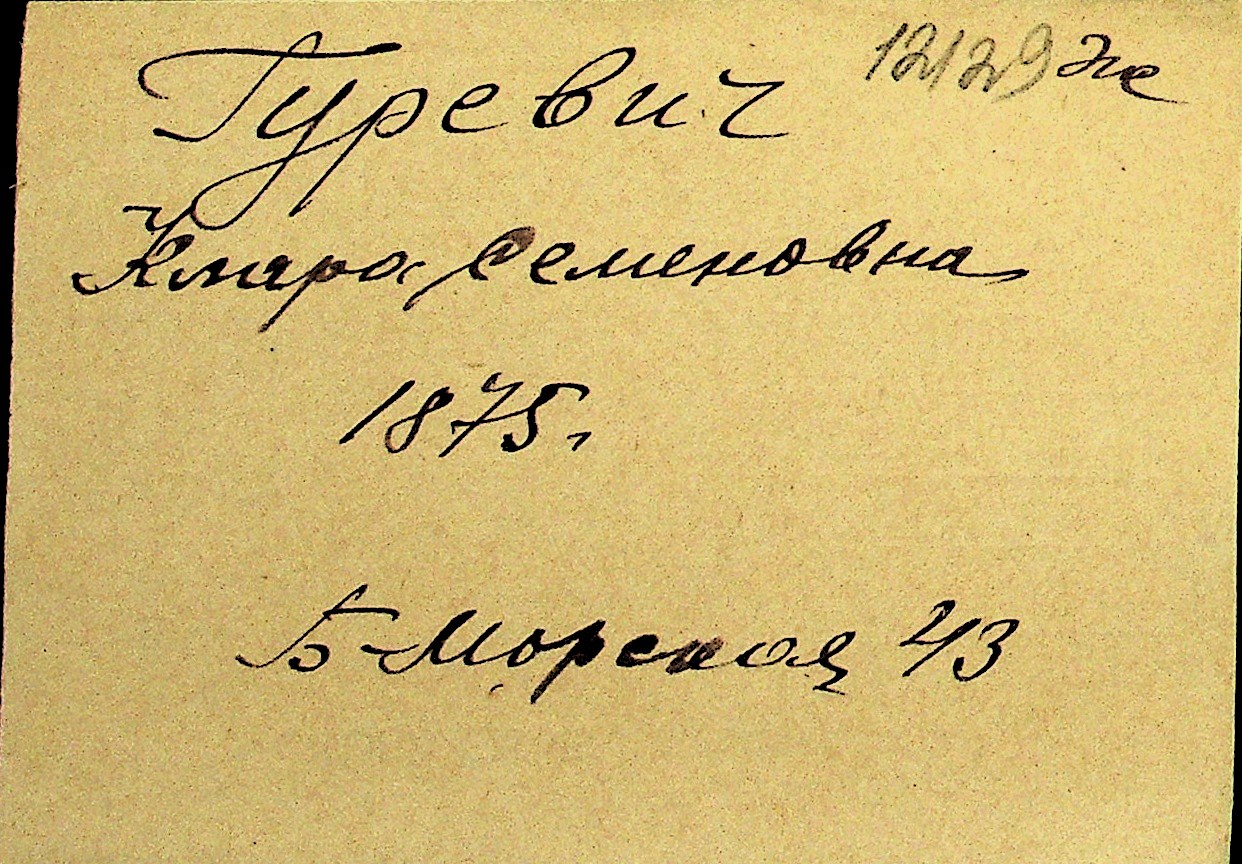 Гуревич 12129 же
Клара Семеновна
1875.
Б-Морская 43